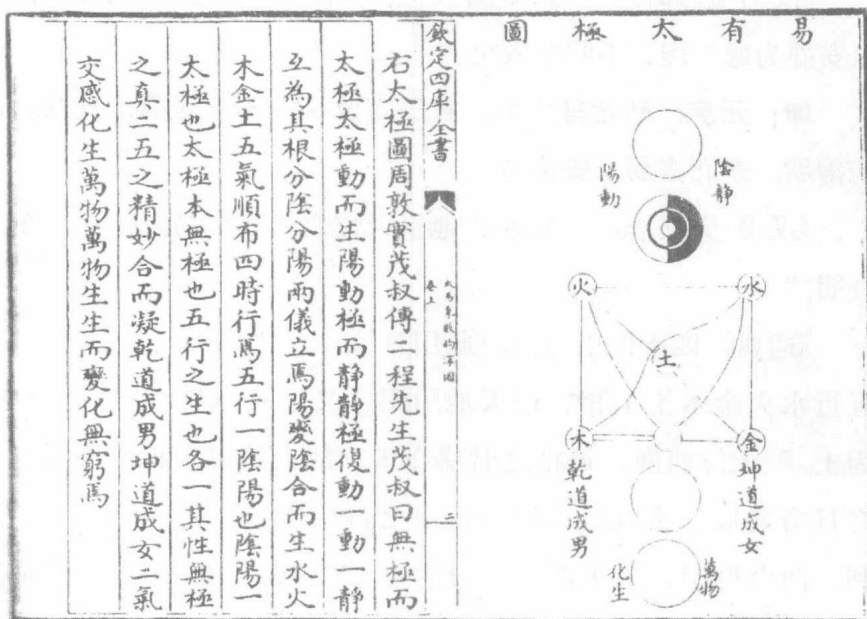 易有太極圖
陰靜
陽動
水
火
土
金
木
坤道成女
乾道成男
萬物
化生
欽定四庫全書
卷上
二
右太極圖周敦實茂叔傳二程先生茂叔曰無極而
太極太極動而生陽動極而靜靜極復動一動一靜
互為其根分陰分陽兩儀立焉陽變陰合而生水火
木金土五氣順布四時行焉五行一陰陽也陰陽一
太極也太極本無極也五行之生也各一其性無極
之真二五之精妙合而凝乾道成男坤道成女二氣
交感化生萬物萬物生生而變化無窮焉